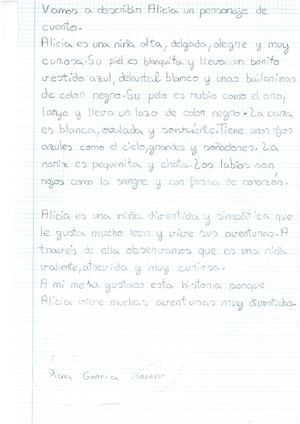 Vamos a describir Alicia un personaje de
cuento.
Alicia es una niña alta, delgada, alegre y muy
curiosa. Su piel es blanquita y lleva un bonito
vestido azul, delantal blanco y unas bailarinas
de color negro. Su pelo es rubio como el oro,
largo y lleva un lazo de color negro. La cara
es blanca, ovalada y sonriente. Tiene unos ojos
azules como el cielo, grandes y soñadores. La
nariz es pequeñita y chata. Los labios son
rojos como la sangre y con forma de corazón.
Alicia es una niña divertida y simpática que
le gusta mucho leer y vivir sus aventuras. A
través de ella observamos que es una niña
valiente, atrevida y muy curiosa.
A mi me ha gustado esta historia porque
Alicia vive muchas aventuras muy divertidas.
Diana García